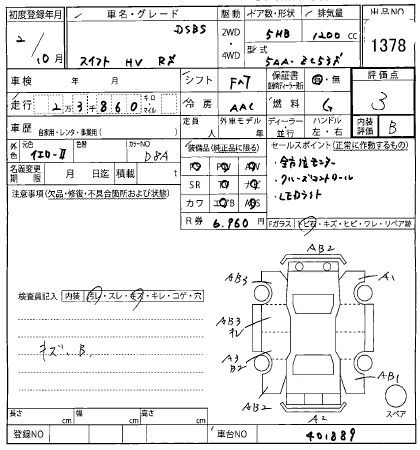 初度登録年月 車名・グレード 駆動 ドア数・形状 排気量 出品NO
DSBS 2WD・4WD 5HB 1200 CC 1378
2/10月 スイフト HV RS 型式 5AA-ZC53S
車検 年 月 シフト FA7 保証書 有・無 評価点
走行 2万3千860 キロ・マイル 冷房 AAC 燃料 G 3
車歴 自家用・レンタ・事業用( ) 定員 人 外車モデル 年 ディーラー・並行 ハンドル 左・右 内装評価 B
外色 元色 イエローⅡ 色替 カラーNO D8A 装備品(純正品に限る) セールスポイント(正常に作動するもの)
名義変更期限 月 日迄 積載 t PS PW AW
・全方位モニター
注意事項(欠品・修復・不具合箇所および状態) SR TV ナビ
・クルーズコントロール
カワ エB ABS
・LEDライト
R券 6,960 Fガラス トビ石・キズ・ヒビ・ワレ・リペア跡
AB2
AB3 A1
検査員記入 内装 汚レ・スレ・キズ・キレ・コゲ・穴
AB3
キズ、B
A3
B2
AB1
AB2
A2
スペア
長さ cm 幅 cm 高さ cm
登録NO 車台NO 401889